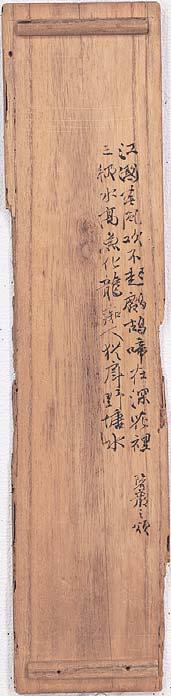 江國春風吹不起鷓鴣啼在深花裡
三級水高魚化龍痴人猶戽夜塘水
碧巖之頌